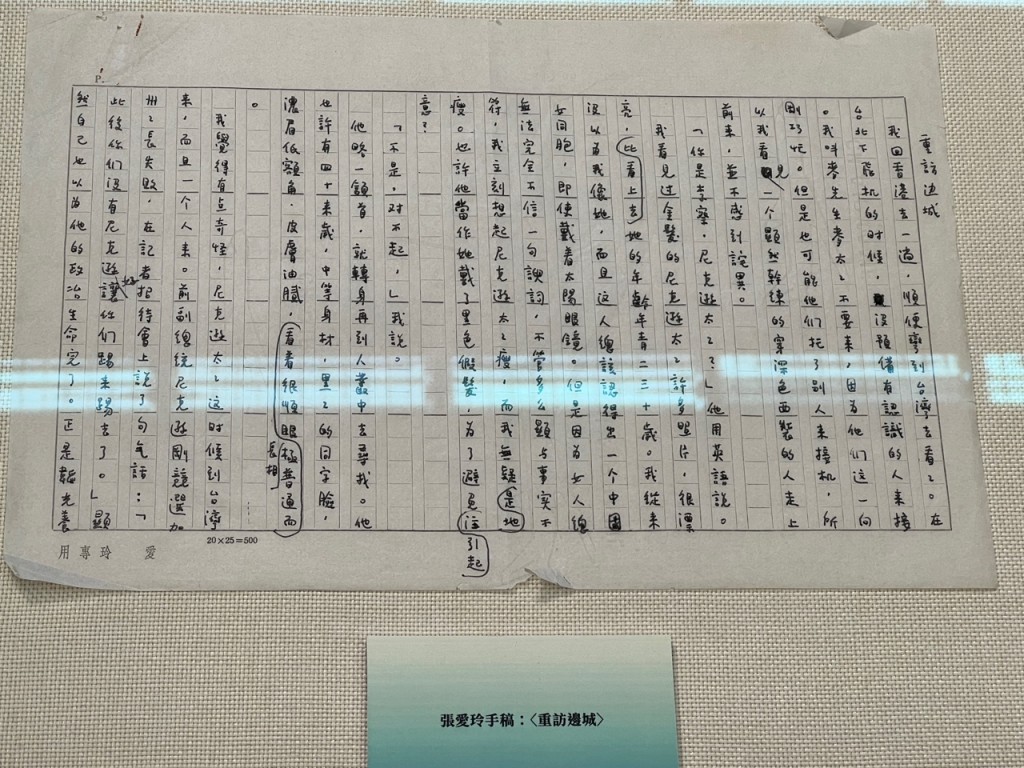 重訪边城
我回香港去一趟，順便彎到台灣去看看。在
台北下飛机的时候，沒預備有認識的人来接
。我叫麥先生麥太太不要来，因为他们这一向
剛巧忙。但是也可能他们托了別人来接机，所
以我看見一个顯然幹練的穿深色西裝的人走上
前来，並不感到詫異。
「你是李察·尼克遜太太？」他用英語說。
我看見过金髮的尼克遜太太許多照片，很漂
亮，比看上去她的年齡年青二三十歲。我從来
沒以为我像她，而且这人總該認得出一个中國
女同胞，即使戴着太陽眼鏡。但是因为女人總
無法完全不信一句諛詞，不管多么顯与事實不
符，我立刻想起尼克遜太々瘦，而我無疑是地
瘦。也許他當作她戴了黑色假髮，为了避免注
引起
意？
「不是，对不起，」我說。
他略一頷首，就轉身再到人叢中去尋找。他
也許有四十来歲，中等身材，黑々的同字臉，
濃眉低額角，皮膚油膩，看着很順眼極普通而
長相
。
我覺得有点奇怪，尼克遜太々这时候到台灣
来，而且一个人来。前副總統尼克遜剛競選加
州々長失敗，在記者招待會上說了句气話：「
此後你们沒有尼克遜好讓你们踢来踢去了。」顯
然自己也以为他的政治生命完了。正是韜光養
P.
20×25=500
愛玲專用
張愛玲手稿：〈重訪邊城〉